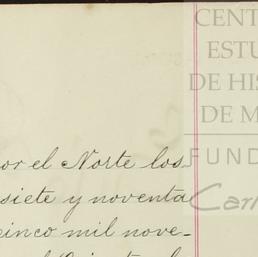 CENT
ESTU
DE HIS
DE M
FUND
Carl
por el Norte los
siete y noventa
cinco mil nove-